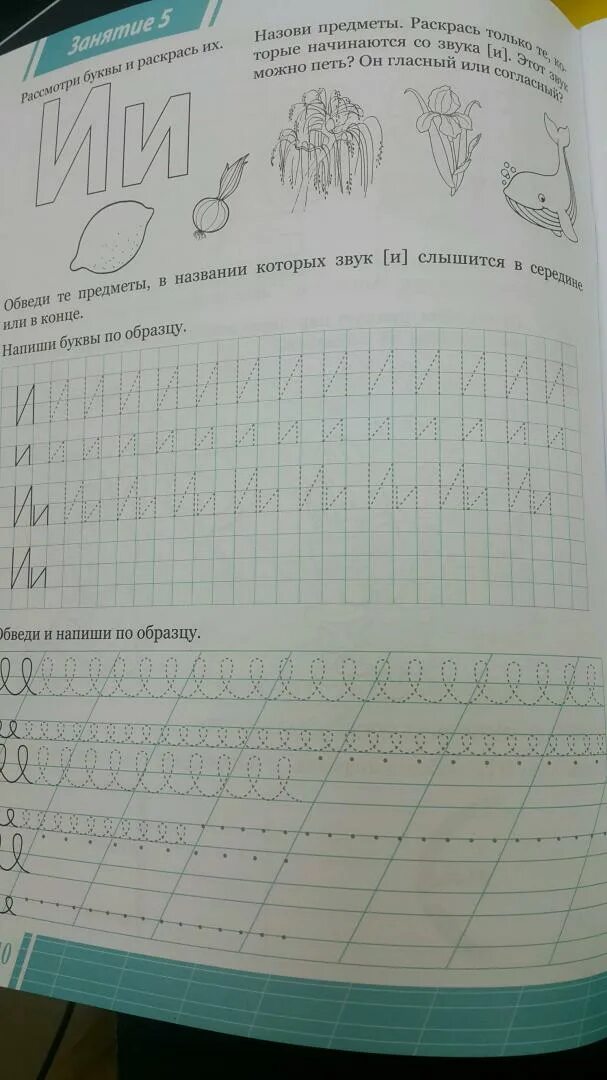 Занятие 5
Рассмотри буквы и раскрась их.
Назови предметы. Раскрась только те, ко-
торые начинаются со звука [и]. Этот звук
можно петь? Он гласный или согласный?
Ии
Обведи те предметы, в названии которых звук [и] слышится в середине
или в конце.
Напиши буквы по образцу.
И И И И И И И И И И И И И И
и и и и и и и и и и и и и и
Ии Ии Ии Ии Ии Ии Ии Ии Ии Ии
Ии
Обведи и напиши по образцу.
10